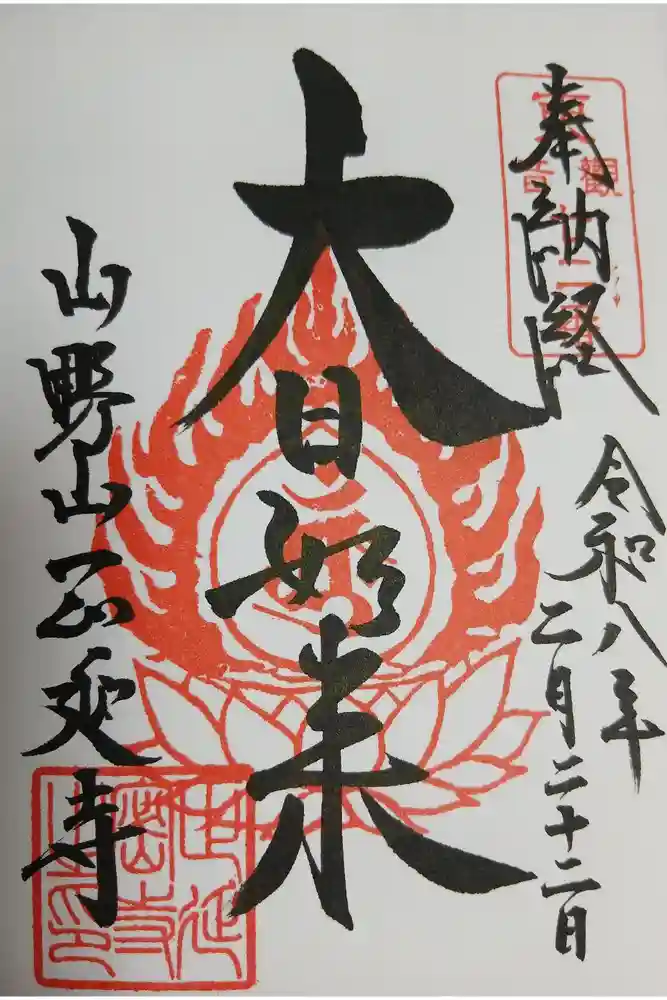 奉納経
令和八年
二月二十二日
大日如来
山野山延寺
觀音